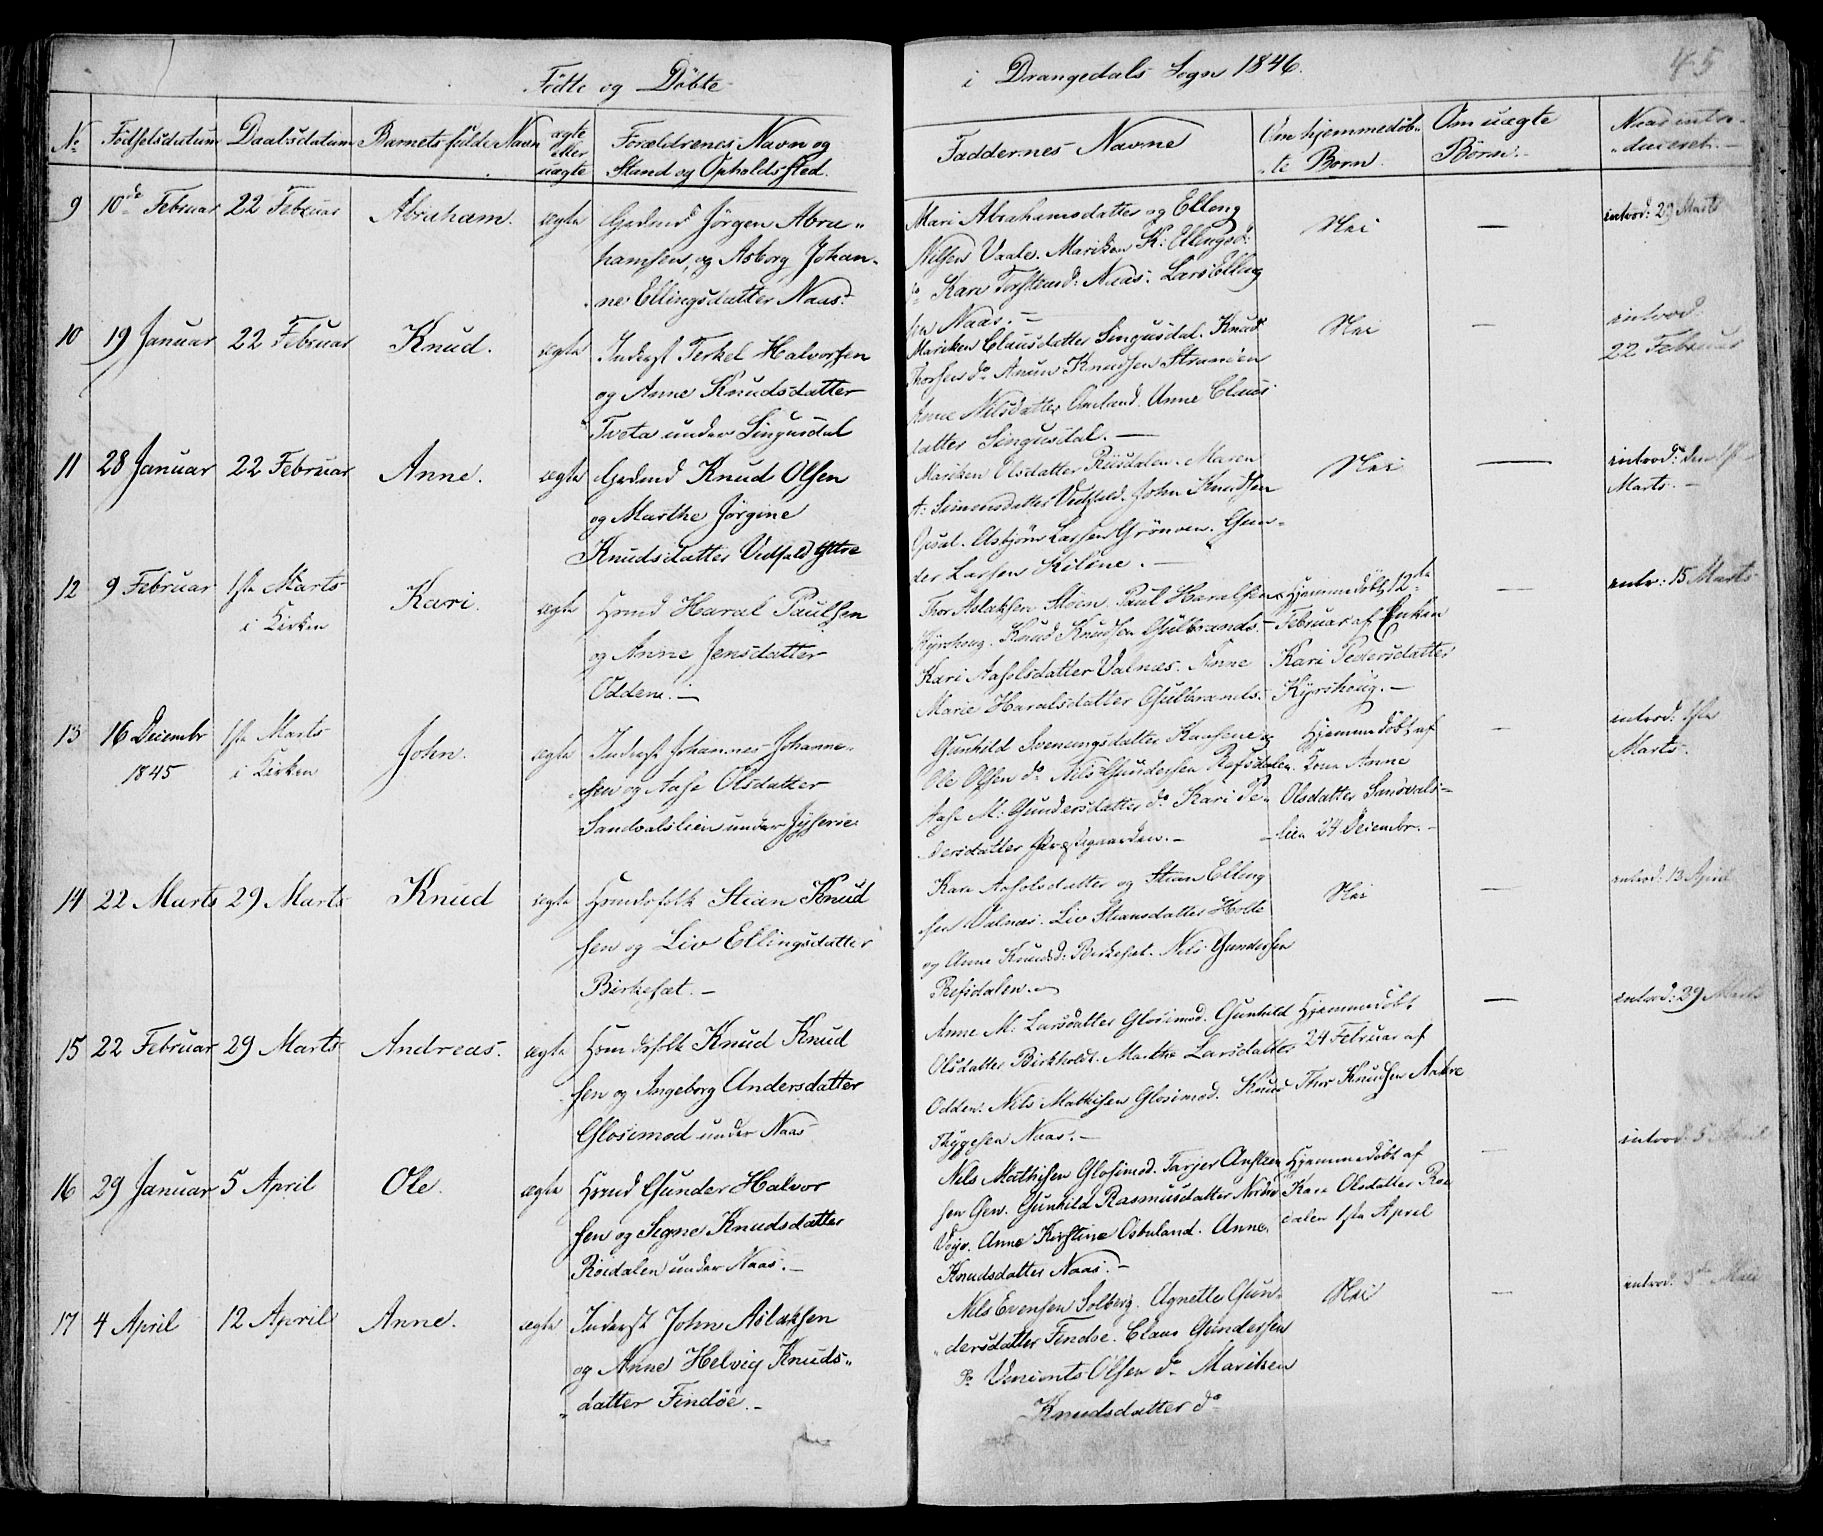 Fødte og Døbte
i Drangedals Sogn 1846.
45
No
Fødselsdatum
Daabsdatum
Barnets fulde Navn
ægte
eller
uægte
Forældrenes Navn og
Stand og Opholdssted.
Faddernes Navne
Om hjemmedøb-
te Børn.
Om uægte
Børn.
Naar intro-
duceret.
9
10de Februar
22 Februar
Abraham.
ægte
Gadmd Jørgen Abra-
hamsen, og Asborg Johan-
ne Ellingsdatter Naas.
Mari Abrahamsdatter og Elling
Nilsen Vaale. Mariken K: Ellingsd:
do Kari Torstensd: Naas. Lars Elling
sen Naas. -
Nei
-
introd: 29 Marts
10
19 Januar
22 Februar
Knud.
ægte
Inderst Terkel Halvorsen
og Anne Knudsdatter
Tveta under Lingusdal
Mariken Clausdatter Lingusdal. Knud
Thorsen do Anun Knudsen Stranden
Anne Nilsdatter Omland. Anne Claus
datter Lingusdal. -
Nei
-
introd.
22 Februar
11
28 Januar
22 Februar
Anne.
ægte
Gadmd Knud Olsen
og Marthe Jørgine
Knudsdatter Vidfald Ytre
Mariken Olsdatter Riisdalen. Maren
A: Simensdatter Vidfald. John Knudsen
Asbjørn Larsen Grønven. Gun-
der Larsen Kiline. -
Nei
-
introd: den 1ste
Marts. -
12
9 Februar
1ste Marts
i Kirken
Kari.
ægte
Hmd Haral Paulsen
og Anne Jensdatter
Odden. -
Thor Aslaksen Støen. Paul Haralsen
Kyrshoug. Knud Knudsen Gulbrands-
Kari Aasolsdatter Valnæs. Anne
Marie Haralsdatter Gulbrands.
Hjemmedøbt 12te
Februar af Enken
Kari Pedersdatter
Kyrshoug. -
-
intr: 15 Marts
13
16 Decembr
1845
1ste Marts
i Kirken
John.
ægte
Inderst Johannes Johanne-
sen og Aase Olsdatter
Sandvalslien under
Gunhild Sveningsdatter
Ole Olsen do Nils Gundersen Refsdalen
Aase M: Gundersdatter do Kari Pe-
dersdatter Præstegaarden. -
Hjemmedøbt af
Kone Anne
Olsdatter Sandvals-
lien 24 Decembr. -
-
introd: 1ste
Marts.
14
22 Marts
29 Marts
Knud
ægte
Huusfolk Stian Knud
sen og Liv Ellingsdatter
Birkesæt. -
Kari Aasolsdatter og Stian Elling
sen Valnæs. Liv Stiansdatter Holte
og Anne Knudsd: Birkesæt. Nils Gundersen
Refsdalen. -
Nei
-
introd: 13 April
15
22 Februar
29 Marts
Andreas.
ægte
Huusfolk Knud Knud
sen og Ingeborg Andersdatter
Glosimod under Naas
Anne M: Larsdatter Glosimod. Gunhild
Olsdatter Birkholdt. Marthe Larsdatter
Odden. Nils Mathisen Glosimod. Knud
Thygesen Naas. -
Hjemmedøbt
24 Februar af
Thor Knudsen Aakre
-
introd: 29 Marts
16
29 Januar
5 April
Ole.
ægte
Hmd Gunder Halvor
sen og Signe Knudsdatter
Roidalen under Naas. -
Nils Mathisen Glosimod. Tarjer Ansten
sen Gen. Gunhild Rasmusdatter
Anne Kirstine Osbuland. Anne
Knudsdatter Naas. -
Hjemmedøbt af
Kari Olsdatter Roi
dalen 1ste April
-
introd: 5 April
17
4 April
12 April
Anne.
ægte
Inderst John Aslaksen
og Anne Helvig Knuds-
datter Findøe. -
Nils Evensen Solberg. Agnette Gun-
dersdatter Findøe. Claus Gundersen
do Olsen do Mariken
Knudsdatter do
Nei
-
introd: 3die Mai